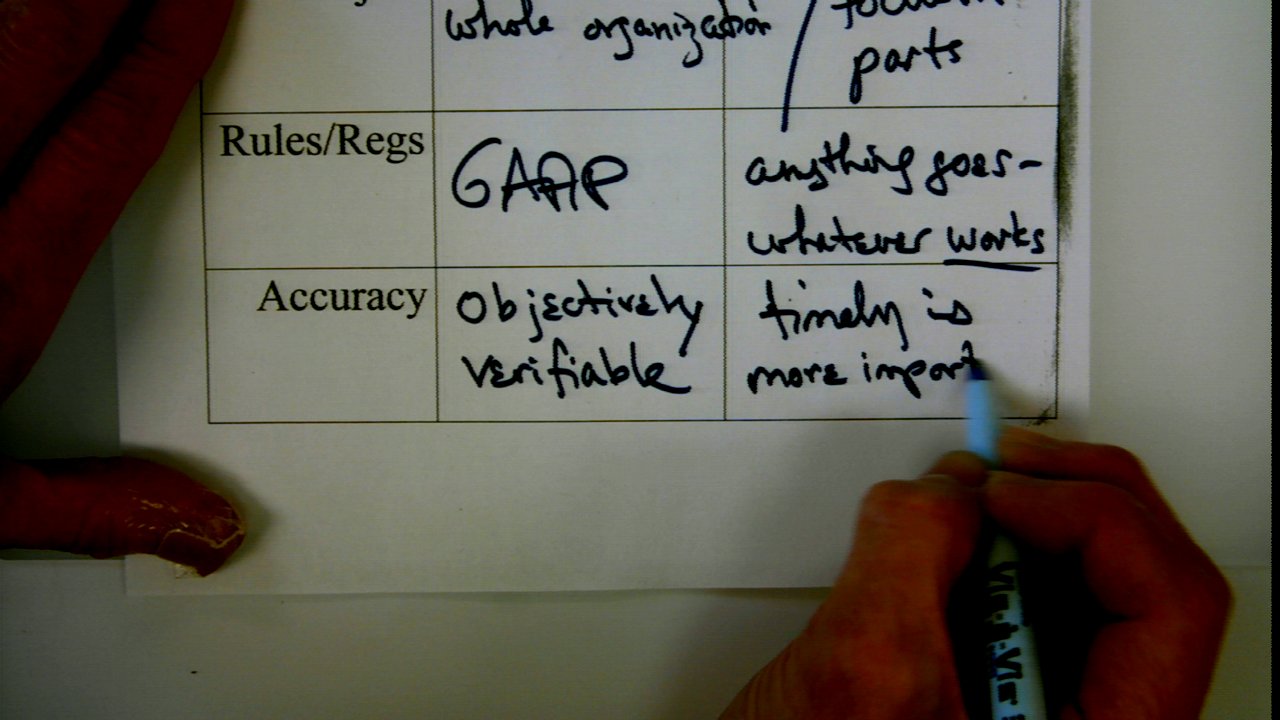 whole organization
parts
Rules/Regs
GAAP
anything goes-
whatever works
Accuracy
Objectively
verifiable
timely is
more import